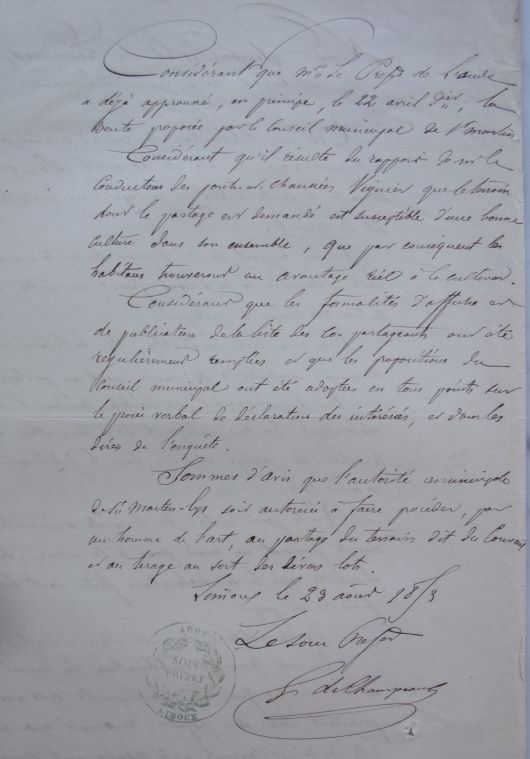 Considérant que Mr. Le Préft de l'aude
a déjà approuvé, en principe, le 22 avril dier, la
Vente proposée par le Conseil municipal de St Martin.
Considérant qu'il résulte du rapport de Mr le
Conducteur des ponts et chaussées Viguier que le terrain
dont le partage est demandé est susceptible d'une bonne
culture dans son ensemble, que par conséquent les
habitans trouveront un avantage réel à le cultiver.
Considérant que les formalités d'affiche et
de publication de la liste des co-partageants ont été
régulièrement remplies et que les propositions du
Conseil municipal ont été adoptées en tous points sur
le procès verbal de déclaration des intéressés, et dans les
dires de l'enquête.
Sommes d'avis que l'autorité municipale
de St Martin-lys soit autorisée à faire procéder, par
un homme de l'art, au partage du terrain dit du
et au tirage au sort des divers lots.
Limoux le 23 août 1853
Le sous Préfet
G. de Champeaux
AUDE
SOUS
PREFET
LIMOUX